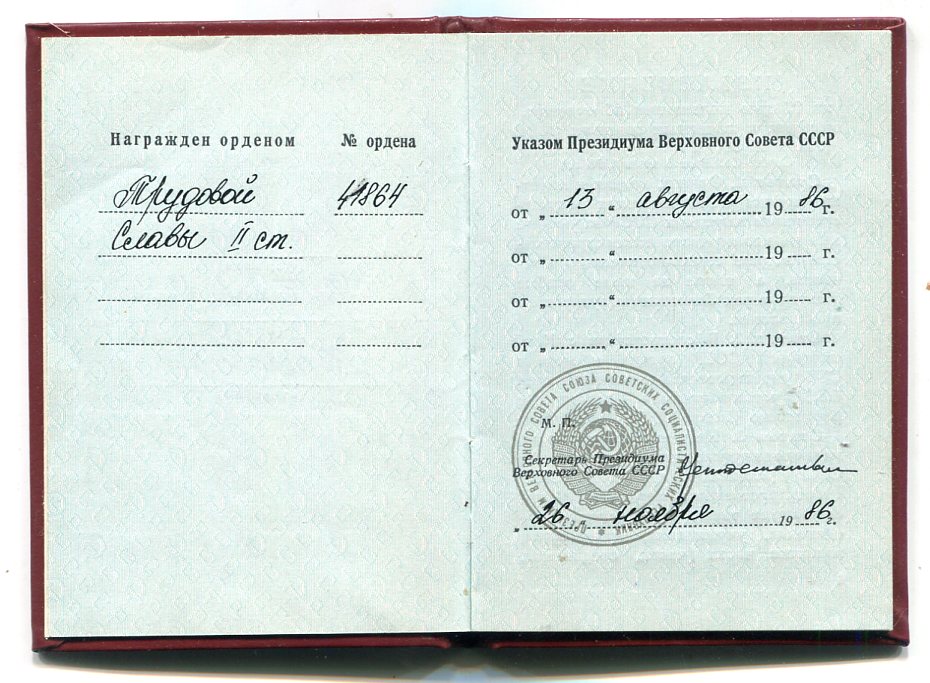 Награжден орденом № ордена
Трудовой 41864
Славы II ст.
Указом Президиума Верховного Совета СССР
от „ 13 “ августа 1986 г.
от „ “ 19 г.
от „ “ 19 г.
от „ “ 19 г.
ПРЕЗИДИУМ ВЕРХОВНОГО СОВЕТА СОЮЗА СОВЕТСКИХ СОЦИАЛИСТИЧЕСКИХ
М. П.
Секретарь Президиума
Верховного Совета СССР
„ 26 “ ноября 1986 г.